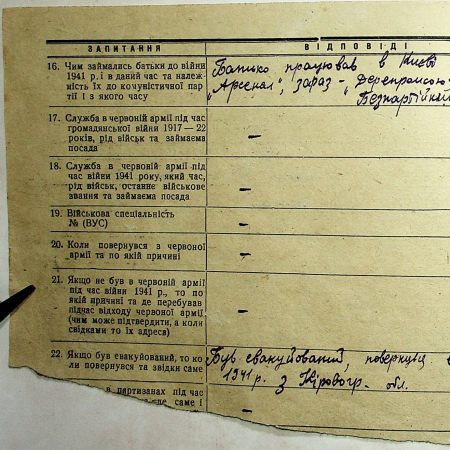 ЗАПИТАННЯ ВІДПОВІДІ
16. Чим займались батьки до війни
1941 р. і в даний час та належ-
ність їх до комуністичної пар
тії і з якого часу
Батько працював в Києві
„Арсенал", зараз -
Безпартійний
17. Служба в червоній армії під час
громадянської війни 1917 — 22
років, рід військ та займаєма
посада
—
18. Служба в червоній армії під
час війни 1941 року, який час,
рід військ, останнє військове
звання та займаєма посада
—
19. Військова спеціальність
№ (ВУС)
—
20. Коли повернувся з червоної
армії та по якій причині
—
21. Якщо не був в червоній армії
під час війни 1941 р., то по
якій причині та де перебував
підчас відходу червоної армії
(чим може підтвердити, а коли
свідками то їх адреса)
—
22. Якщо був евакуйований, то ко
ли повернувся та звідки саме
Був евакуйований,
1941 р. з Кіровогр. обл.
в партизанах під час
саме і
—